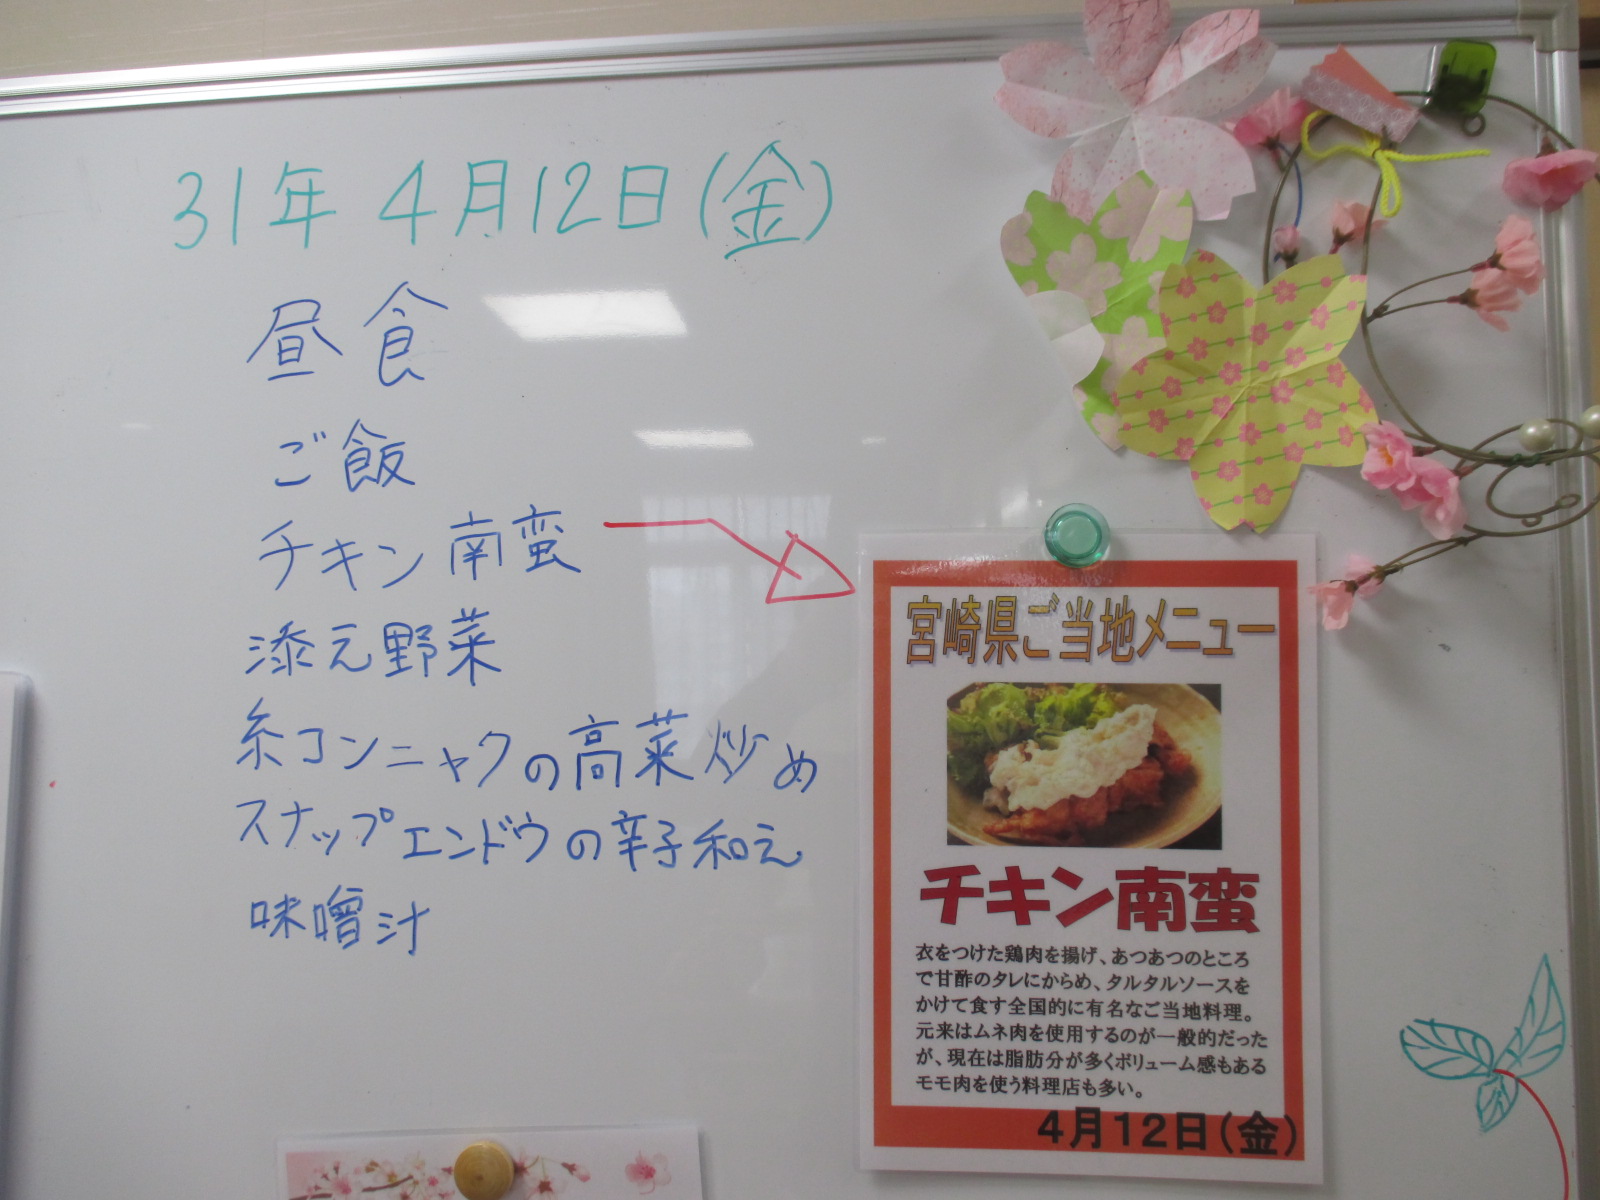 31年 4月12日(金)
昼食
ご飯
チキン南蛮
添え野菜
糸コンニャクの高菜炒め
スナップエンドウの辛子和え
味噌汁
宮崎県ご当地メニュー
チキン南蛮
衣をつけた鶏肉を揚げ、あつあつのところ
で甘酢のタレにからめ、タルタルソースを
かけて食す全国的に有名なご当地料理。
元来はムネ肉を使用するのが一般的だった
が、現在は脂肪分が多くボリューム感もある
モモ肉を使う料理店も多い。
4月12日(金)